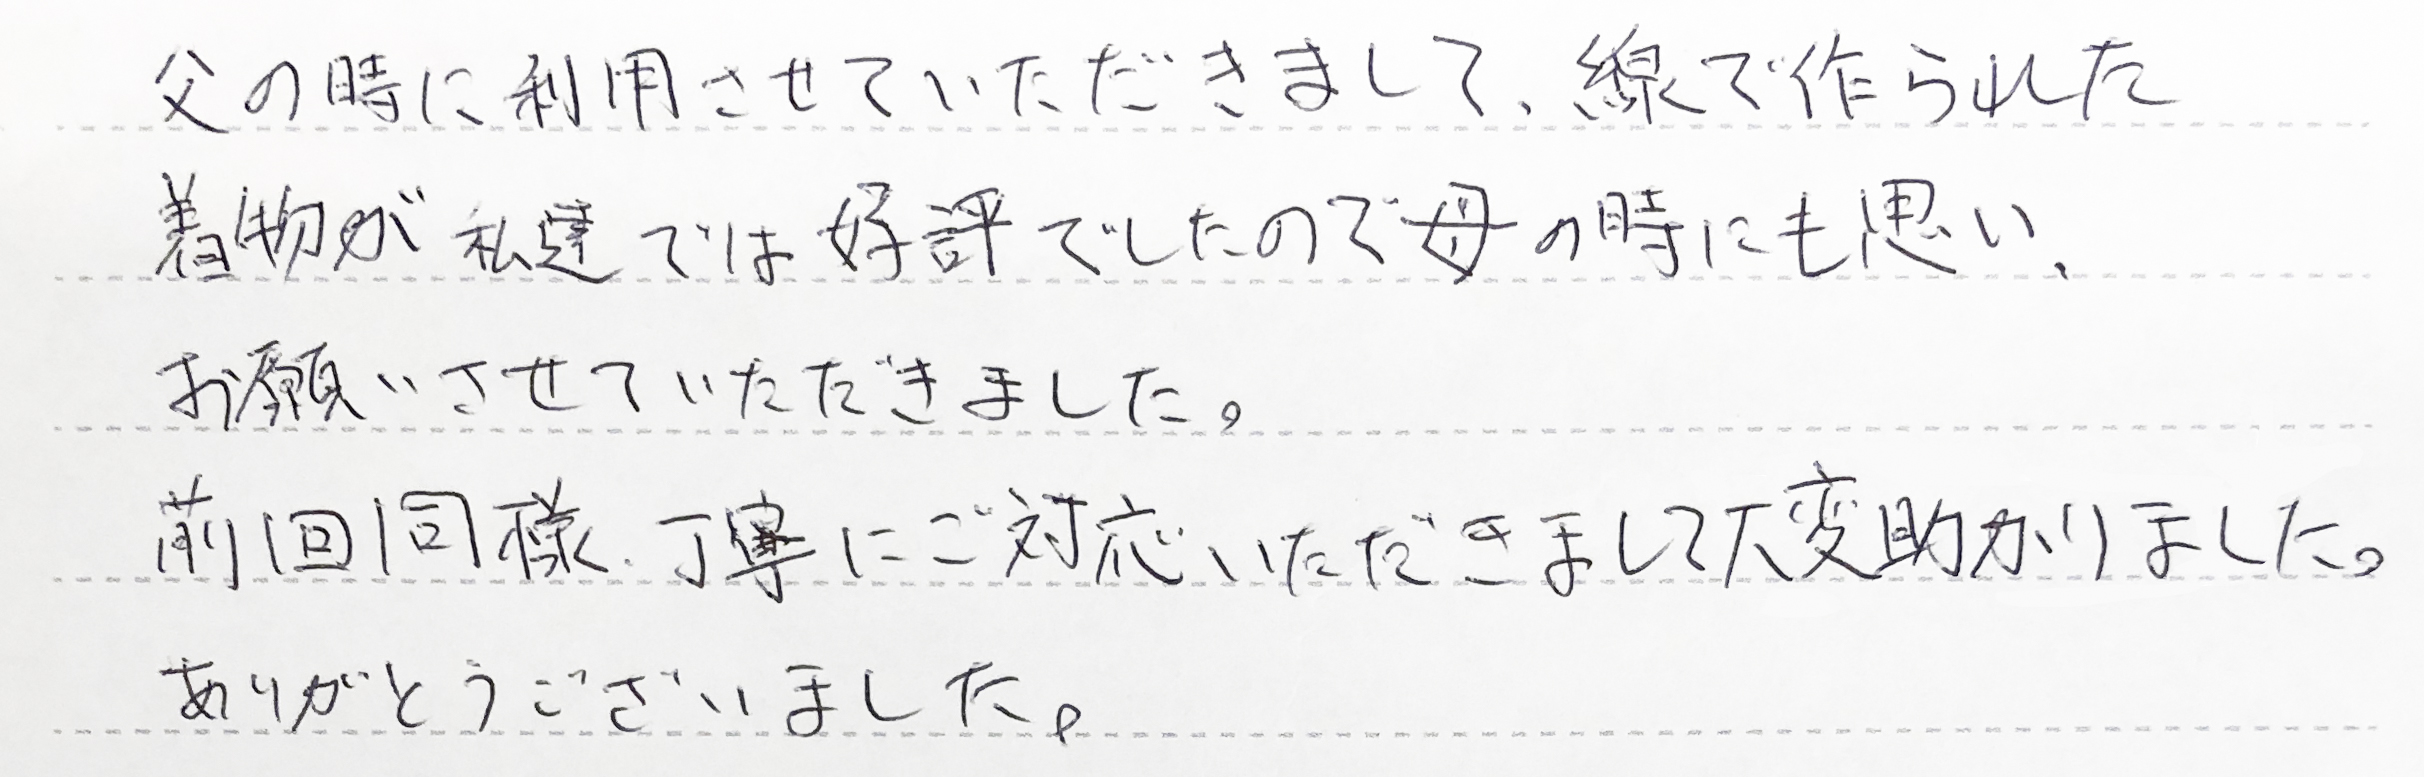 父の時に利用させていただきまして、線で作られた
着物が私達では好評でしたので母の時にも思い、
お願いさせていただきました。
前回同様、丁寧にご対応いただきまして大変助かりました。
ありがとうございました。